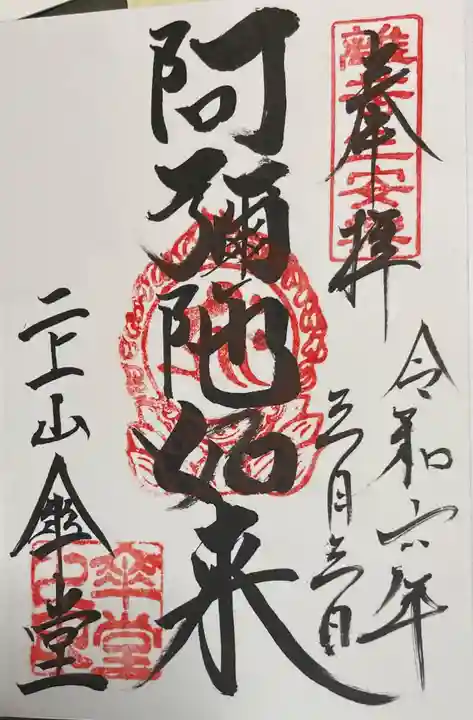 奉拝
令和六年
三月三日
阿彌陀如来
二上山傘堂
傘堂